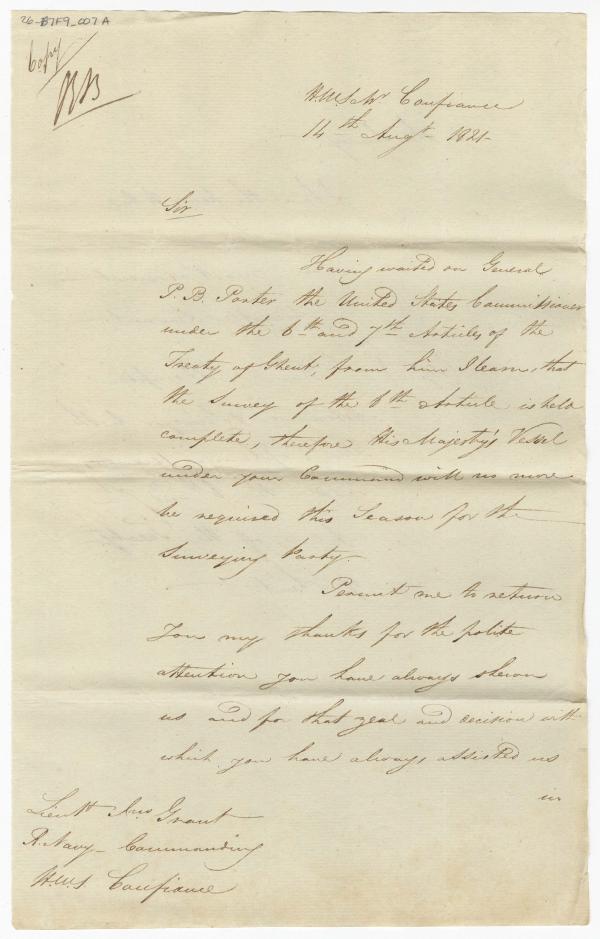 26-B7F9_007A
Copy
BB
H.M.S. Confiance
14th Augt 1821
Sir
Having waited on General
P. B. Porter the United States Commissioner
under the 6th and 7th Articles of the
Treaty of Ghent, from him I learn, that
the Survey of the 6th Article is held
complete, therefore His Majesty's Vessel
under your Command will no more
be required this Season for the
Surveying Party.
Permit me to return
You my thanks for the polite
attention you have always shewn
us and for that zeal and decision with
which you have always assisted us
in
Lieutt Jno Grant
R. Navy - Commanding
H.M.S Confiance